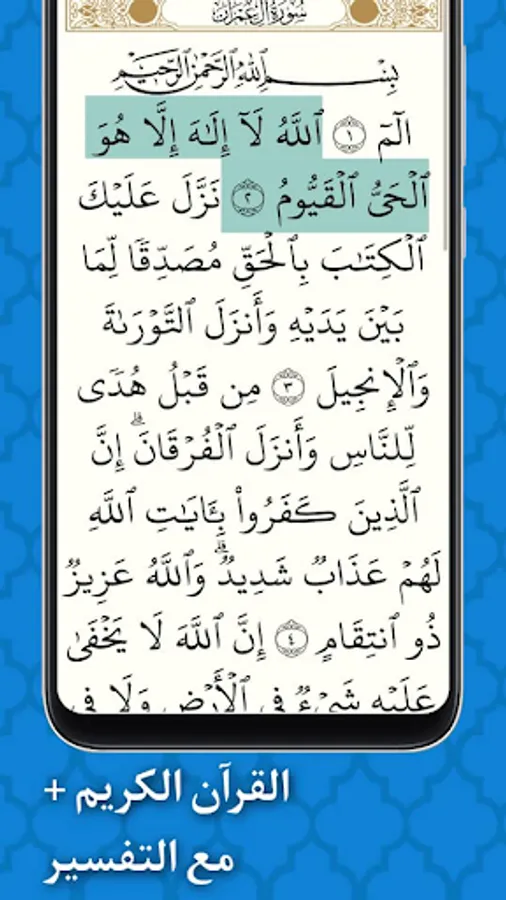 سُورَةُ آلِ عِمْرَانَ
بِسْمِ ٱللَّهِ ٱلرَّحْمَٰنِ ٱلرَّحِيمِ
الٓمٓ ١ ٱللَّهُ لَآ إِلَٰهَ إِلَّا هُوَ
ٱلْحَىُّ ٱلْقَيُّومُ ٢ نَزَّلَ عَلَيْكَ
ٱلْكِتَٰبَ بِٱلْحَقِّ مُصَدِّقًا لِّمَا
بَيْنَ يَدَيْهِ وَأَنزَلَ ٱلتَّوْرَىٰةَ
وَٱلْإِنجِيلَ ٣ مِن قَبْلُ هُدًى
لِّلنَّاسِ وَأَنزَلَ ٱلْفُرْقَانَ ۗ إِنَّ
ٱلَّذِينَ كَفَرُوا۟ بِـَٔايَٰتِ ٱللَّهِ
لَهُمْ عَذَابٌ شَدِيدٌ ۗ وَٱللَّهُ عَزِيزٌ
ذُو ٱنتِقَامٍ ٤ إِنَّ ٱللَّهَ لَا يَخْفَىٰ
عَلَيْهِ شَىْءٌ فِى ٱلْأَرْضِ وَلَا فِى
القرآن الكريم +
مع التفسير